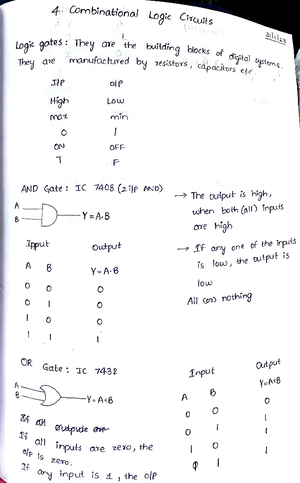 4. Combinational Logic Circuits
Logic gates: They are the building blocks of digital systems.
They are manufactured by resistors, capacitors etc
I/P O/P
High Low
max min
0 1
ON OFF
T F
AND Gate: IC 7408 (2 i/p AND)
A
B
Y=A·B
Input Output
A B Y=A·B
0 0 0
0 1 0
1 0 0
1 1 1
→ The output is high,
when both (all) inputs
are high
→ If any one of the inputs
is low, the output is
low
All (or) nothing
OR Gate: IC 7432
A
B
Y=A+B
If all outputs are
If all inputs are zero, the
o/p is zero.
If any input is 1, the o/p
Input Output
A B Y=A+B
0 0 0
0 1 1
1 0 1
1 1